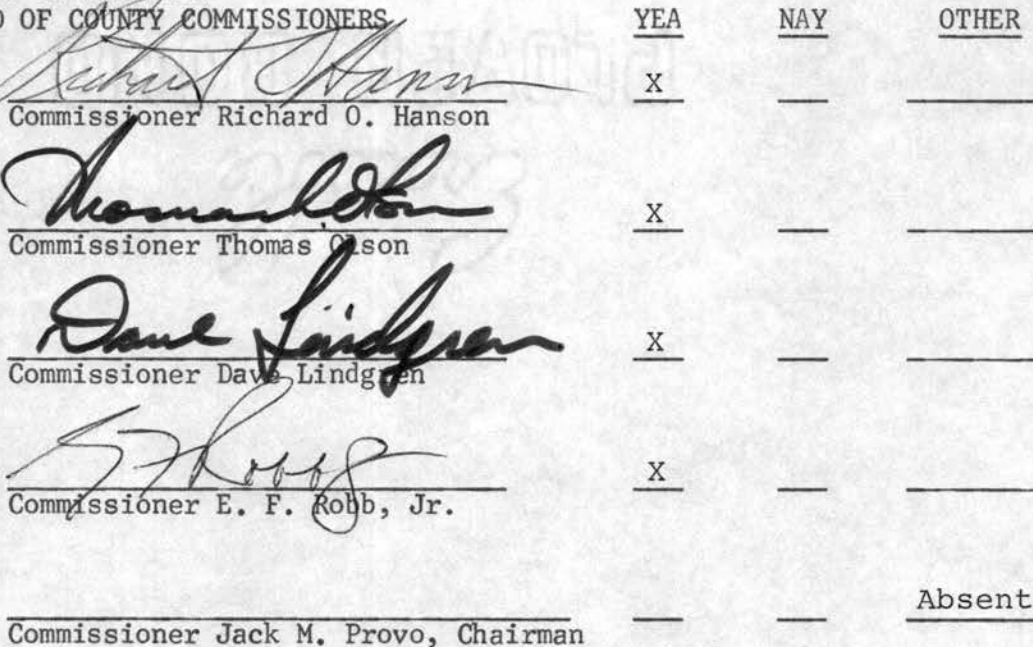 D OF COUNTY COMMISSIONERS YEA NAY OTHER
Richard O Hanson X
Commissioner Richard O. Hanson
Thomas Olson X
Commissioner Thomas Olson
Dave Lindgren X
Commissioner Dave Lindgren
E F Robb Jr X
Commissioner E. F. Robb, Jr.
Absent
Commissioner Jack M. Provo, Chairman